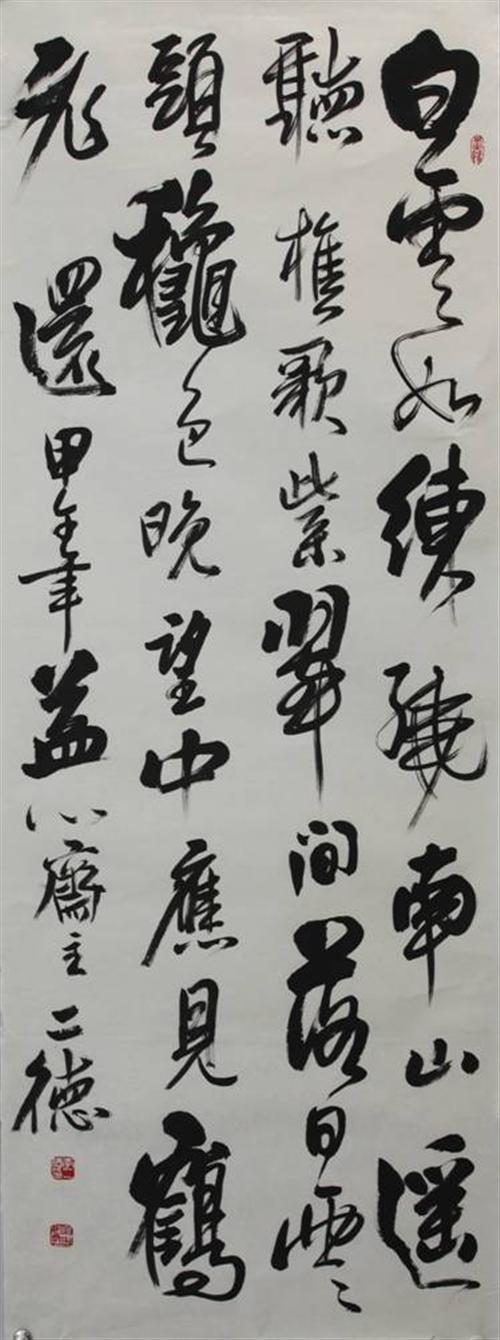 白雲如練繞南山遥
聽樵歌紫翠間落日雲
頭龝色晚望中應見鶴
飛還甲午年益心齋主二德